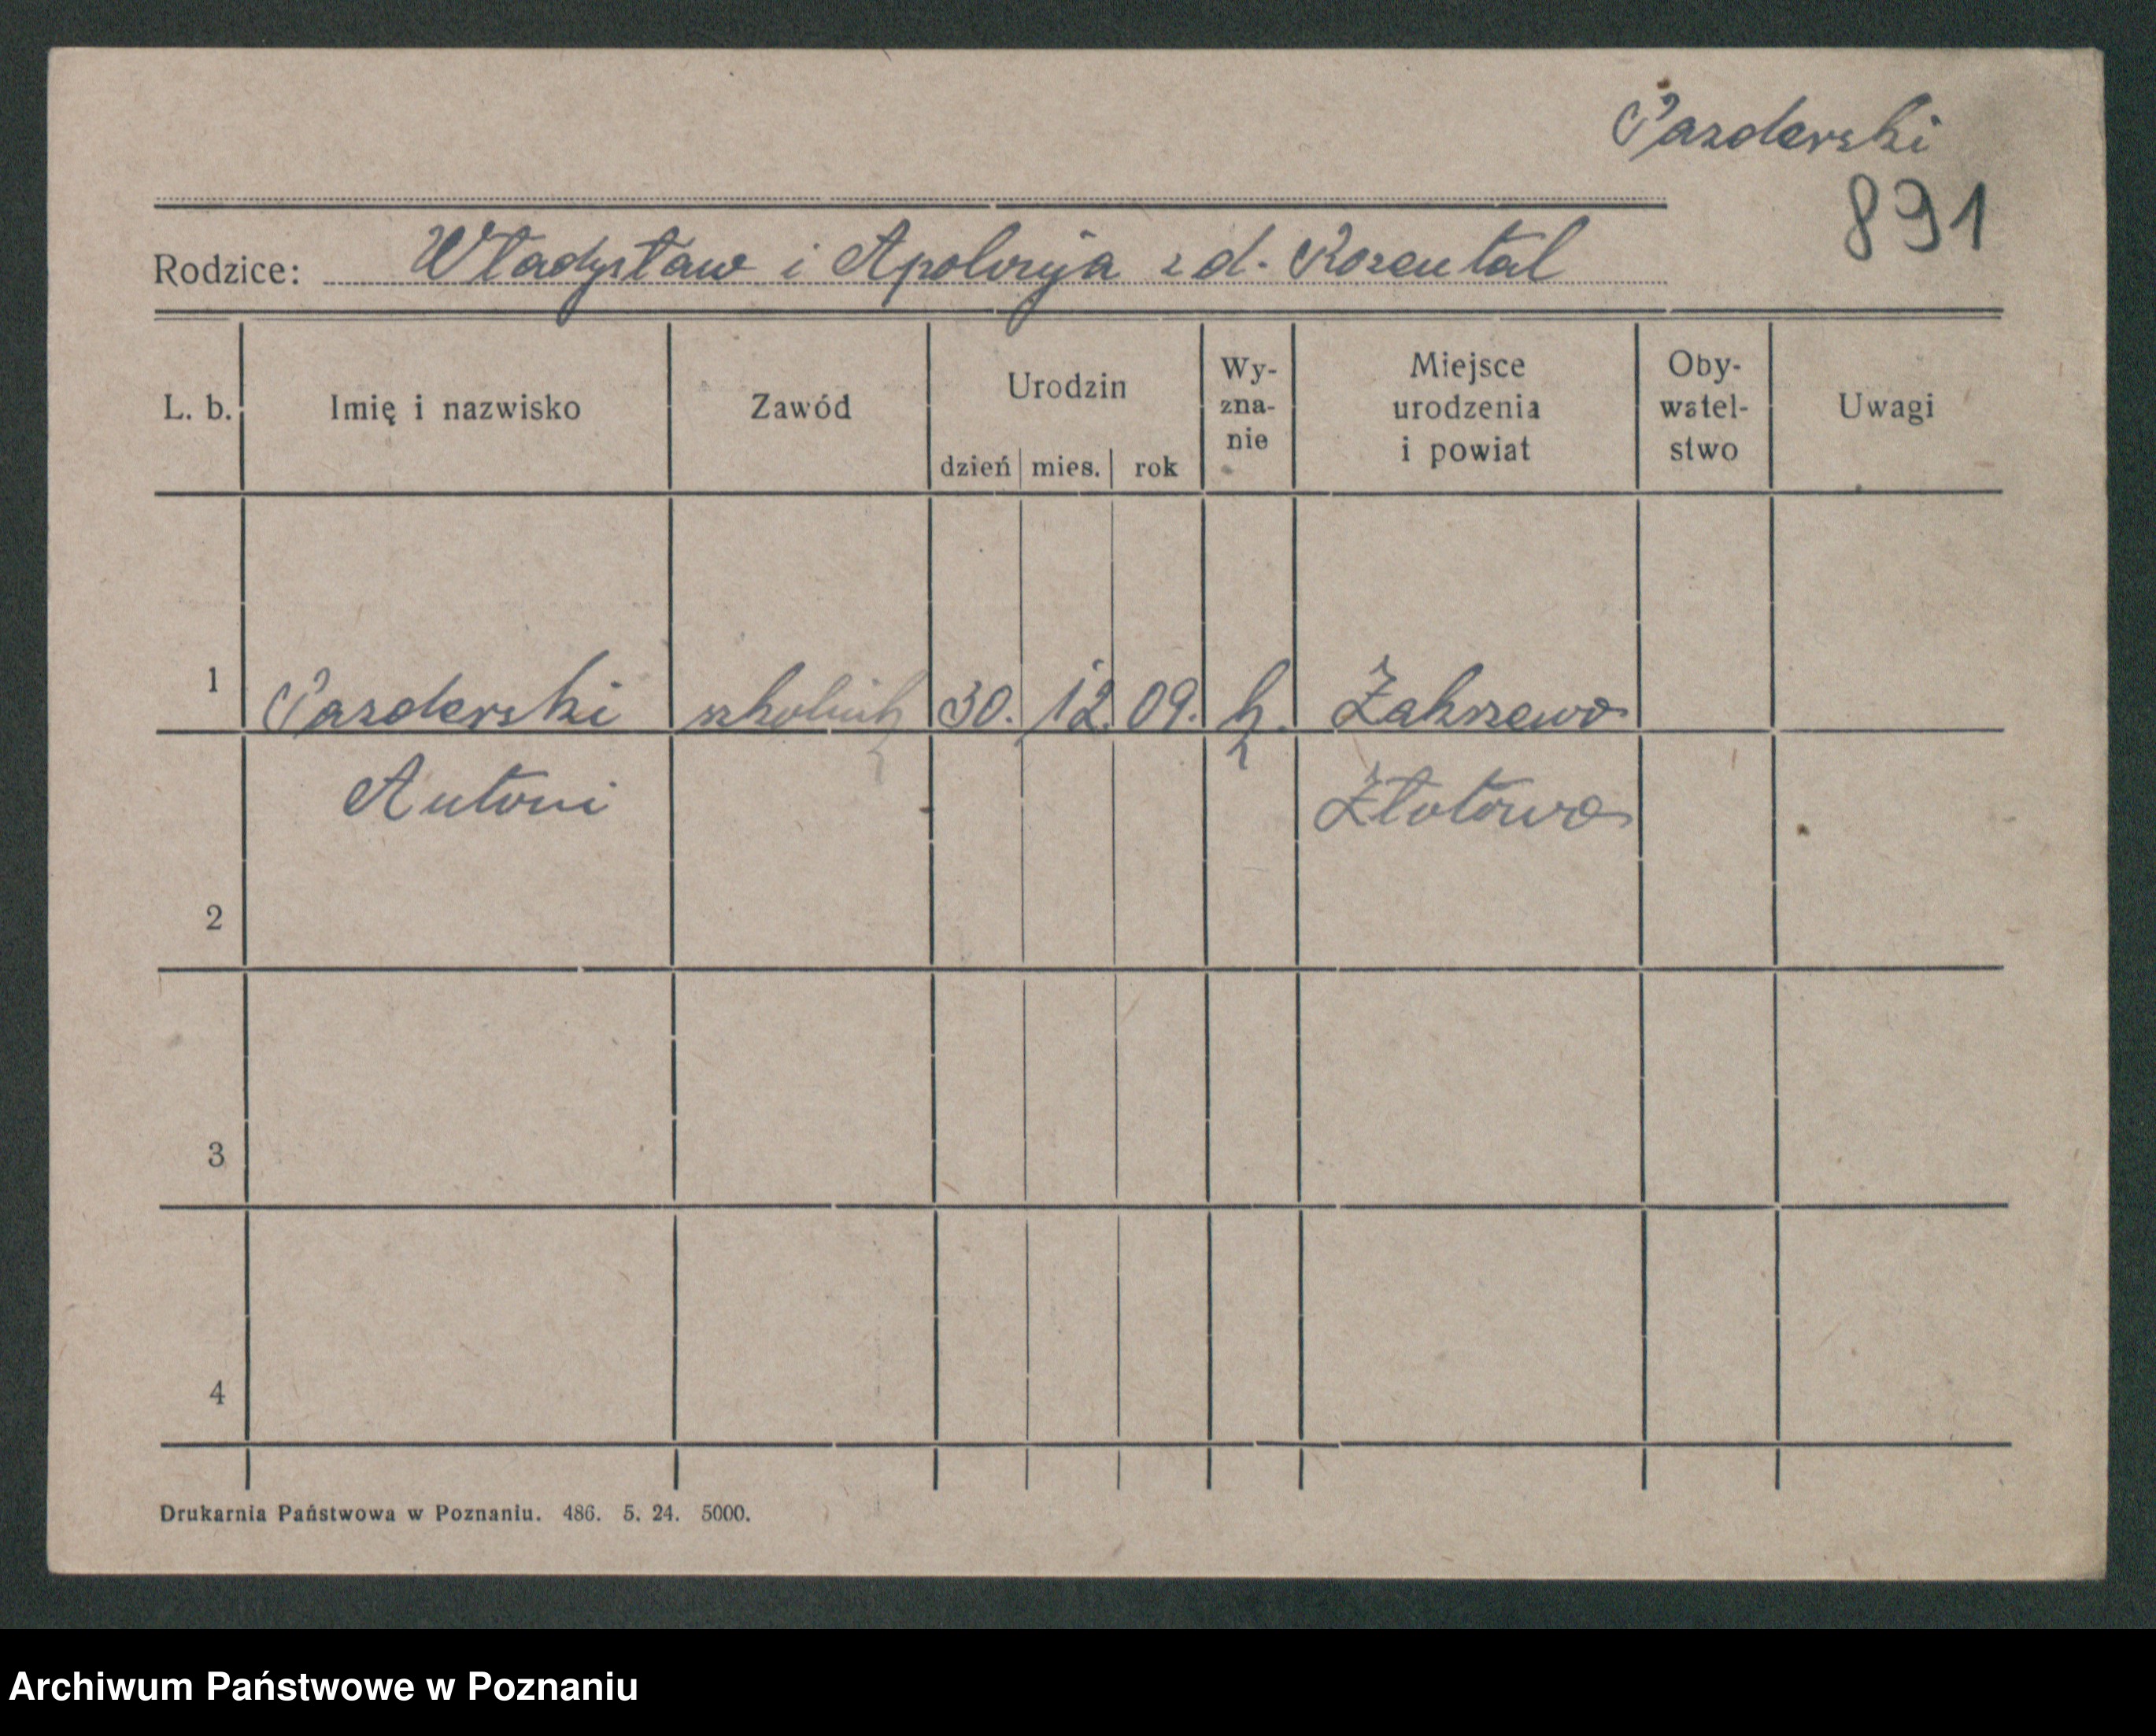 Pazderski
891
Rodzice: Władysław i Apolonja z d. Rozental
L. b. Imię i nazwisko Zawód Urodzin dzień mies. rok Wy- zna- nie Miejsce urodzenia i powiat Oby- watel- stwo Uwagi
1 Pazderski szkolnik 30. 12. 09. k. Zakrzewo
Antoni Złotowo
2
3
4
Drukarnia Państwowa w Poznaniu. 486. 5. 24. 5000.
Archiwum Państwowe w Poznaniu